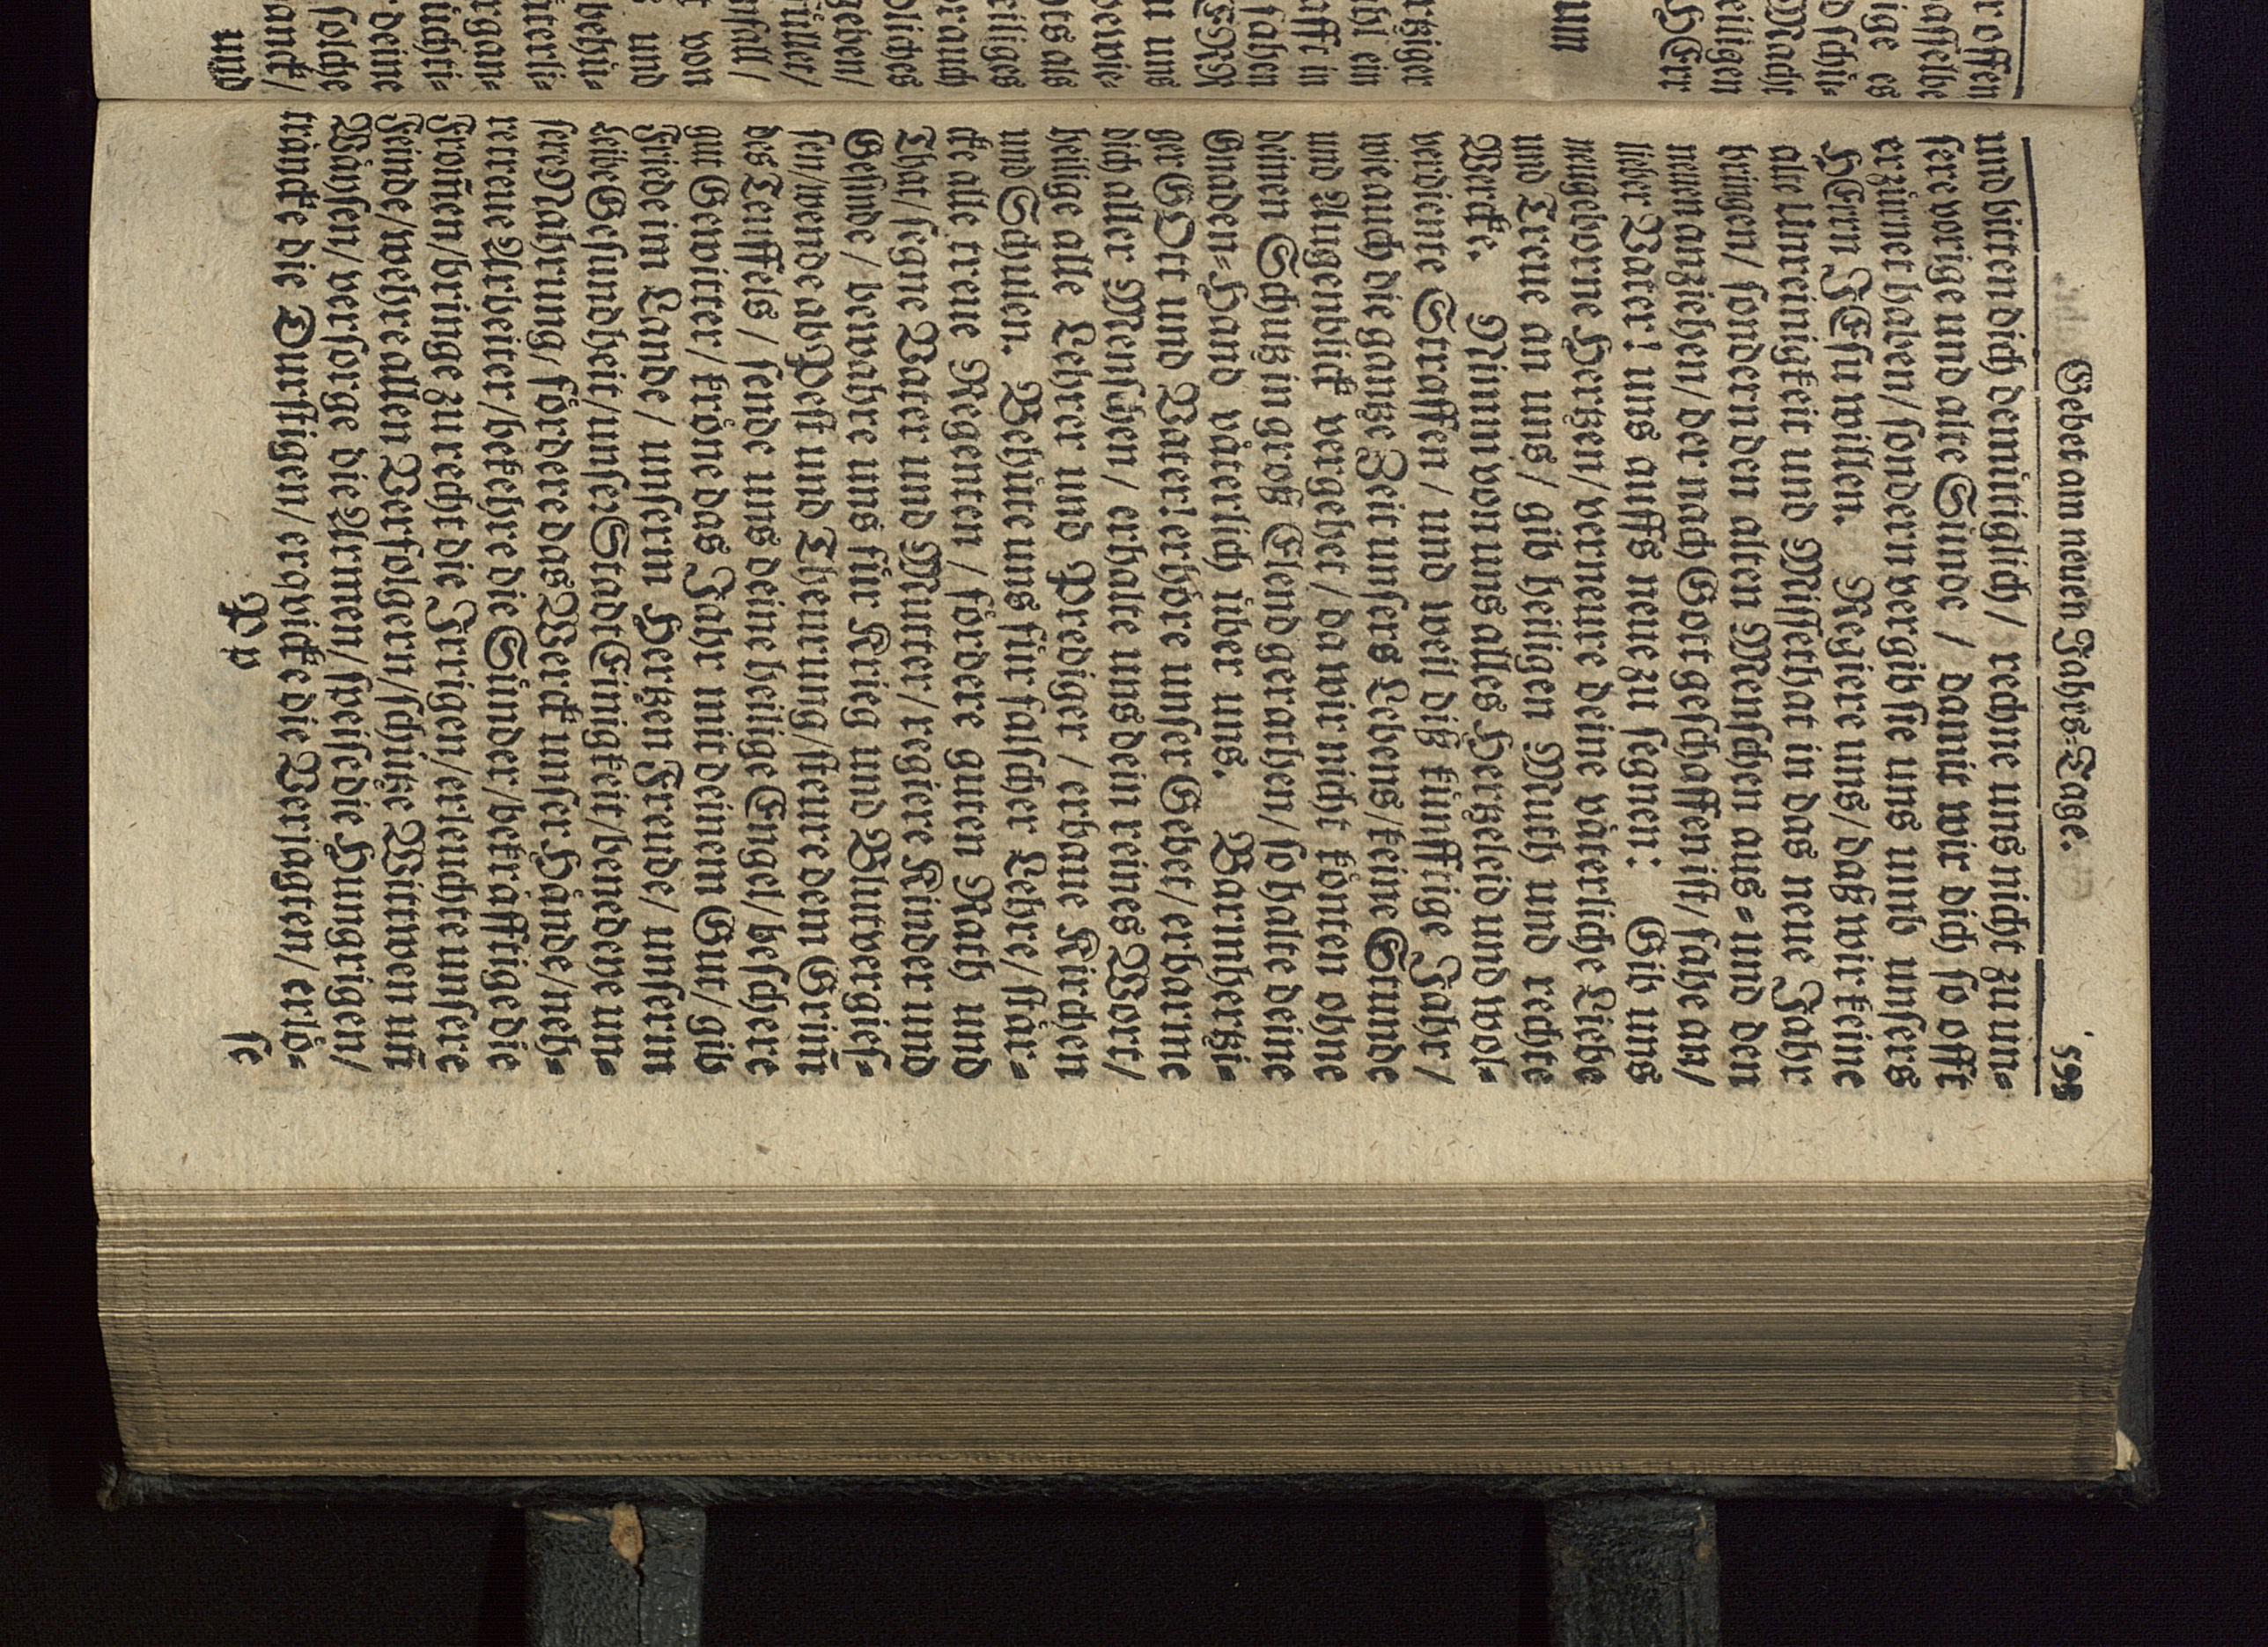 r offen
asselbe
ige es
d schü-
Macht
eiligen
HErr
um
rtziger
hl ein
afft in
sahen
u uns
eiliges
geben/
nfall/
t von
und
behü-
deine
solche
danck/
und
Gebet am neuen Jahrs-Tage. 593
und bitten dich demütiglich/ rechne uns nicht zu un-
sere vorige und alte Sünde / damit wir dich so offt
erzürnet haben/ sondern vergib sie uns umb unsers
HErrn JEsu willen. Regiere uns/ daß wir keine
alte Unreinigkeit und Missethat in das neue Jahr
bringen/ sondern den alten Menschen aus- und den
neuen anziehen/ der nach Gott geschaffen ist/ sahe an/
lieber Vater! uns auffs neue zu segnen: Gib uns
neugeborne Hertzen/ verneure deine väterliche Liebe
und Treue an uns/ gib heiligen Muth und rechte
Wercke. Nimm von uns alles Hertzeleid und wol-
verdiente Straffen / und weil diß künfftige Jahr/
wie auch die gantze Zeit unsers Lebens/ keine Stunde
und Augenblick vergehet/ da wir nicht könten ohne
deinen Schutz in groß Elend gerathen/ so halte deine
Gnaden-Hand väterlich über uns. Barmhertzi-
ger GOtt und Vater! erhöre unser Gebet/ erbarme
dich aller Menschen / erhalte uns dein reines Wort/
heilige alle Lehrer und Prediger / erbaue Kirchen
und Schulen. Behüte uns für falscher Lehre/ stär-
cke alle treue Regenten / fördere guten Rath und
That/ segne Vater und Mutter/ regiere Kinder und
Gesinde / bewahre uns für Krieg und Blutvergies-
sen/ wende ab Pest und Theurung/ steure dem Grim̃
des Teuffels / sende uns deine heilige Engel/ beschere
gut Gewitter/ kröne das Jahr mit deinem Gut/ gib
Friede im Lande / unserm Hertzen Freude/ unserm
Leibe Gesundheit/ unser Stadt Einigkeit/ benedeye un-
sere Nahrung/ fördere das Werck unser Hände/ neh-
re treue Arbeiter/ bekehre die Sünder/ bekräfftige die
From̃en/ bringe zu recht die Irrigen/ erleuchte unsere
Feinde/ wehre allen Verfolgern/ schütze Witwen un̄
Wäysen/ versorge die Armen/ speise die Hungrigen/
träncke die Durstigen/ erqvicke die Verjagten/ erlö-
P p se